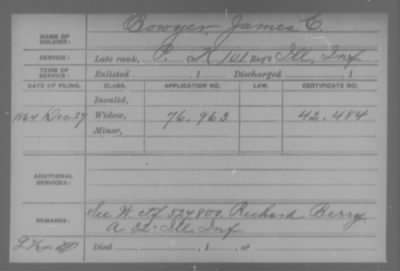 NAME OF SOLDIER: Bowyer, James C.
SERVICE: Late rank, P. Co K, 101 Reg't Ill, Inf
TERM OF SERVICE: Enlisted , 1 Discharged , 1
DATE OF FILING. CLASS. APPLICATION NO. LAW. CERTIFICATE NO.
Invalid,
1864 Dec 29 Widow, 76.963 42.484
Minor,
ADDITIONAL SERVICES:
REMARKS: See W. Ctf 527800. Richard Berry
A 32" Ill Inf
Died , 1 , at